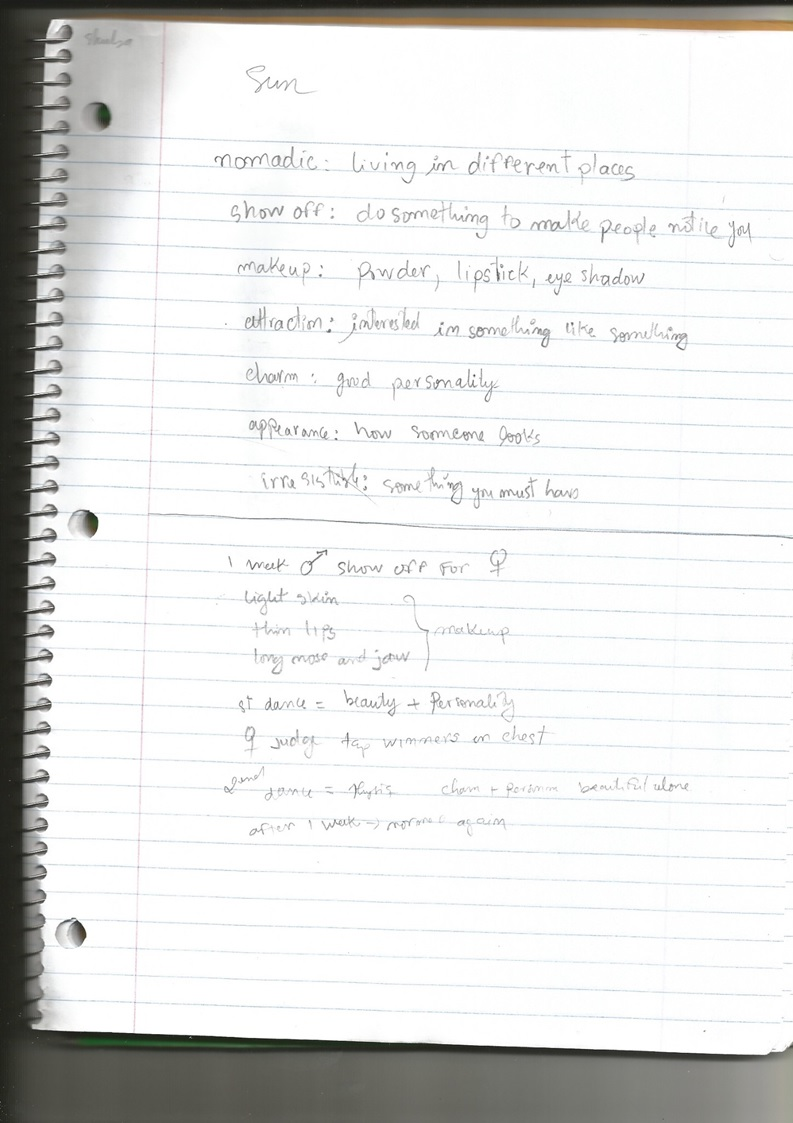 Sun
nomadic: living in different places
show off: do something to make people notice you
makeup: powder, lipstick, eye shadow
attraction: interested in something like something
charm: good personality
appearance: how someone looks
irresistible: something you must have
1 week ♂ show off for ♀
light skin
thin lips } makeup
long nose and jaw
st dance = beauty + Personality
♀ judge tap winners on chest
2nd dance = charm + beautiful alone
after 1 week → again